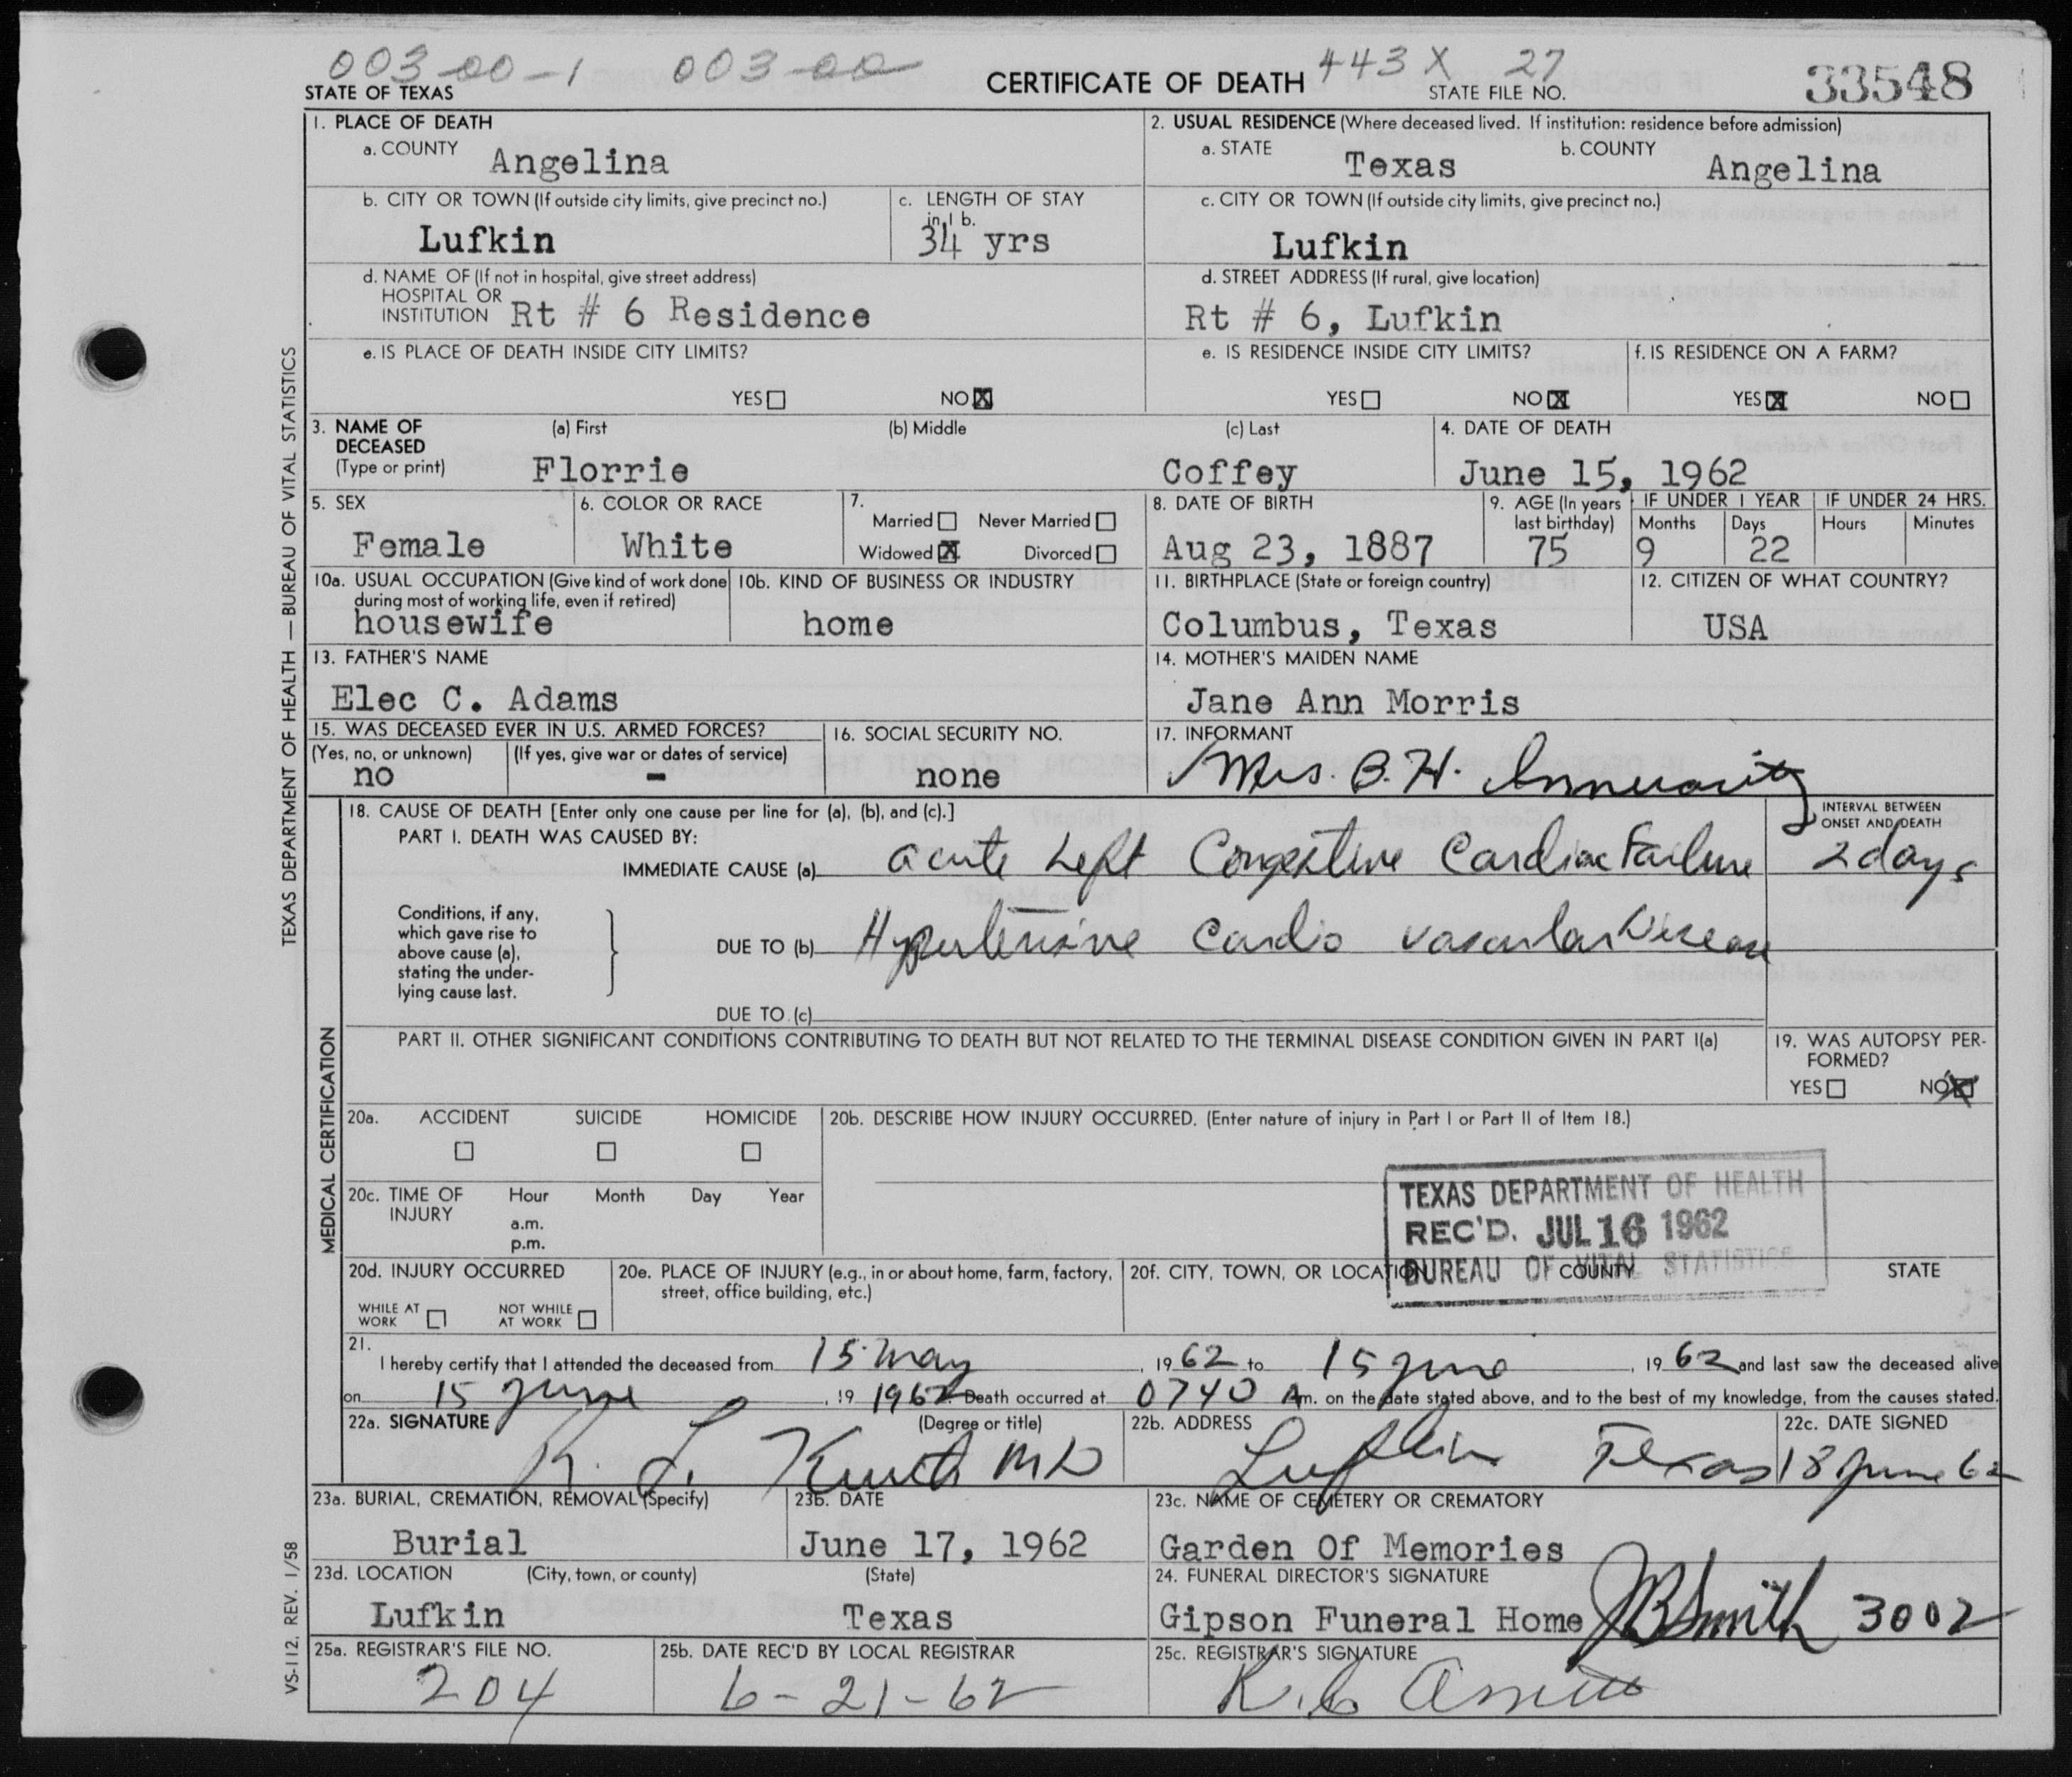 003-00-1 003-00 443X 27
STATE OF TEXAS CERTIFICATE OF DEATH STATE FILE NO. 33548
TEXAS DEPARTMENT OF HEALTH — BUREAU OF VITAL STATISTICS
1. PLACE OF DEATH
a. COUNTY Angelina
2. USUAL RESIDENCE (Where deceased lived. If institution: residence before admission)
a. STATE Texas b. COUNTY Angelina
b. CITY OR TOWN (If outside city limits, give precinct no.)
Lufkin
c. LENGTH OF STAY
in 1 b.
34 yrs
c. CITY OR TOWN (If outside city limits, give precinct no.)
Lufkin
d. NAME OF (If not in hospital, give street address)
HOSPITAL OR
INSTITUTION Rt # 6 Residence
d. STREET ADDRESS (If rural, give location)
Rt # 6, Lufkin
e. IS PLACE OF DEATH INSIDE CITY LIMITS?
YES NO X
e. IS RESIDENCE INSIDE CITY LIMITS?
YES NO X
f. IS RESIDENCE ON A FARM?
YES X NO
3. NAME OF DECEASED (a) First (b) Middle (c) Last
(Type or print) Florrie Coffey
4. DATE OF DEATH
June 15, 1962
5. SEX
Female
6. COLOR OR RACE
White
7.
Married Never Married
Widowed X Divorced
8. DATE OF BIRTH
Aug 23, 1887
9. AGE (In years
last birthday)
75
IF UNDER 1 YEAR
Months Days
9 22
IF UNDER 24 HRS.
Hours Minutes
10a. USUAL OCCUPATION (Give kind of work done
during most of working life, even if retired)
housewife
10b. KIND OF BUSINESS OR INDUSTRY
home
11. BIRTHPLACE (State or foreign country)
Columbus, Texas
12. CITIZEN OF WHAT COUNTRY?
USA
13. FATHER'S NAME
Elec C. Adams
14. MOTHER'S MAIDEN NAME
Jane Ann Morris
15. WAS DECEASED EVER IN U.S. ARMED FORCES?
(Yes, no, or unknown) (If yes, give war or dates of service)
no -
16. SOCIAL SECURITY NO.
none
17. INFORMANT
Mrs. B. H.
MEDICAL CERTIFICATION
18. CAUSE OF DEATH [Enter only one cause per line for (a), (b), and (c).]
PART I. DEATH WAS CAUSED BY:
INTERVAL BETWEEN
ONSET AND DEATH
IMMEDIATE CAUSE (a) acute Left Congestive Cardiac Failure 2 days
Conditions, if any,
which gave rise to
above cause (a),
stating the under-
lying cause last.
DUE TO (b) Hypertensive Cardio vascular Disease
DUE TO (c)
PART II. OTHER SIGNIFICANT CONDITIONS CONTRIBUTING TO DEATH BUT NOT RELATED TO THE TERMINAL DISEASE CONDITION GIVEN IN PART I(a)
19. WAS AUTOPSY PER-
FORMED?
YES NO X
20a. ACCIDENT SUICIDE HOMICIDE
20b. DESCRIBE HOW INJURY OCCURRED. (Enter nature of injury in Part I or Part II of Item 18.)
20c. TIME OF
INJURY
Hour Month Day Year
a.m.
p.m.
TEXAS DEPARTMENT OF HEALTH
REC'D. JUL 16 1962
BUREAU OF VITAL STATISTICS
20d. INJURY OCCURRED
WHILE AT
WORK
NOT WHILE
AT WORK
20e. PLACE OF INJURY (e.g., in or about home, farm, factory,
street, office building, etc.)
20f. CITY, TOWN, OR LOCATION COUNTY STATE
21.
I hereby certify that I attended the deceased from 15 May, 1962 to 15 June, 1962 and last saw the deceased alive
on 15 June, 19 1962. Death occurred at 0740 Am. on the date stated above, and to the best of my knowledge, from the causes stated.
22a. SIGNATURE (Degree or title)
R. L. Kurth MD
22b. ADDRESS
Lufkin Texas
22c. DATE SIGNED
18 June 62
23a. BURIAL, CREMATION, REMOVAL (Specify)
Burial
23b. DATE
June 17, 1962
23c. NAME OF CEMETERY OR CREMATORY
Garden Of Memories
23d. LOCATION (City, town, or county) (State)
Lufkin Texas
24. FUNERAL DIRECTOR'S SIGNATURE
Gipson Funeral Home JB Smith 3002
25a. REGISTRAR'S FILE NO.
204
25b. DATE REC'D BY LOCAL REGISTRAR
6-21-62
25c. REGISTRAR'S SIGNATURE
VS-112, REV. 1/58